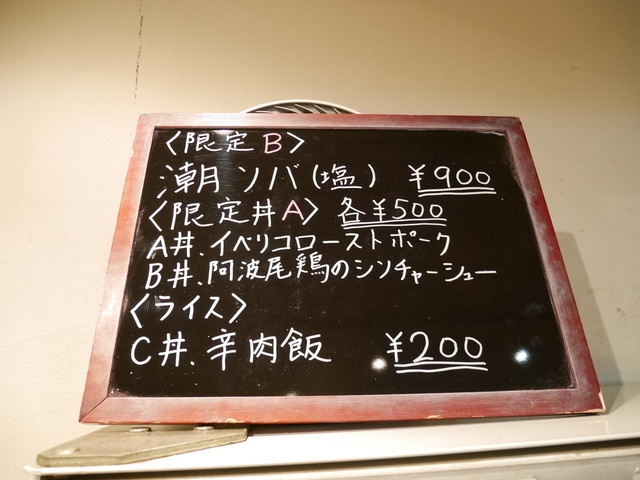 〈限定B〉
潮ソバ(塩) ¥900
〈限定丼A〉 各¥500
A丼.イベリコローストポーク
B丼.阿波尾鶏のシンチャーシュー
〈ライス〉
C丼.辛肉飯 ¥200